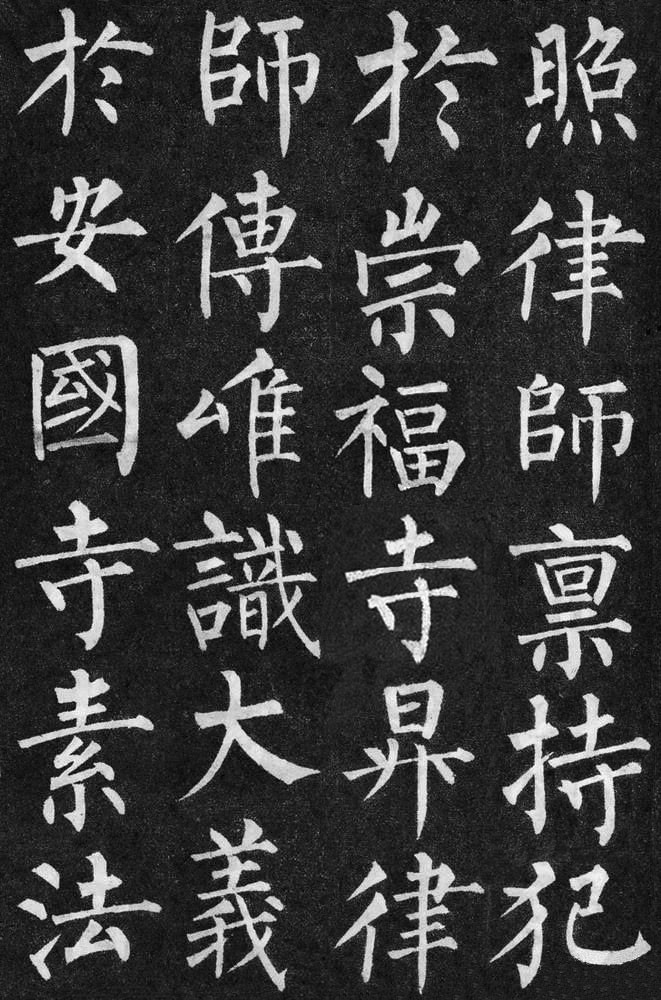 照律師禀持犯
於崇福寺昇律
師傳唯識大義
於安國寺素法